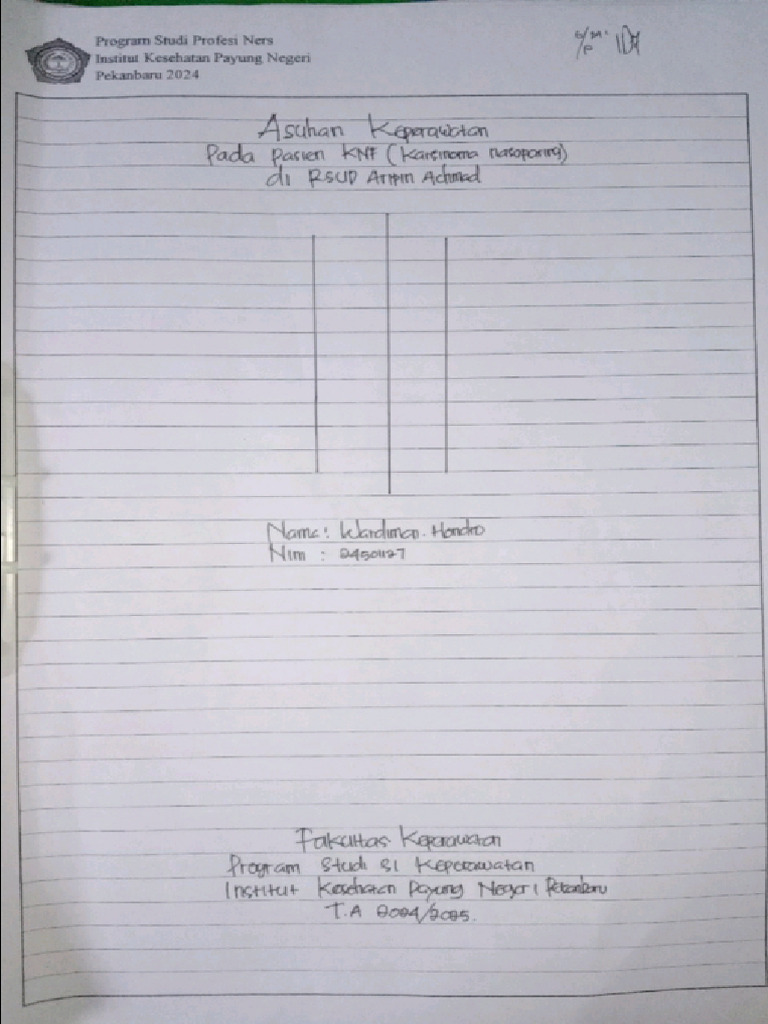 Program Studi Profesi Ners
Institut Kesehatan Payung Negeri
Pekanbaru 2024
Asuhan Keperawatan
Pada pasien KNF (Karsinoma Nasoparing)
di RSUD Arifin Achmad
Nama: Wardiman. Hondro
Nim : 2450127
Fakultas Keperawatan
Program Studi S1 Keperawatan
Institut Kesehatan Payung Negeri Pekanbaru
T.A 2024/2025.